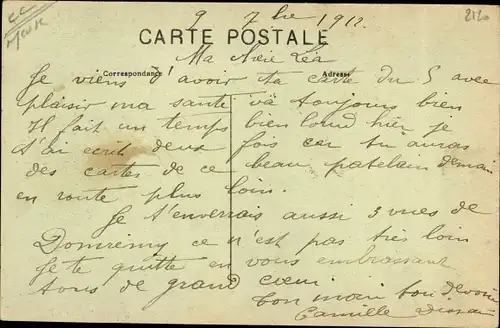 9 7bre 1912.
CARTE POSTALE
Ma Nièce Léa
Correspondance
Adresse
Je viens d'avoir ta carte du 5 avec
plaisir ma santé va toujours bien
Il fait un temps bien lourd hier je
t'ai écrit deux fois car tu auras
des cartes de ce beau patelain demain
en route plus loin.
Je t'enverrais aussi 3 vues de
Domrémy ce n'est pas très loin
Je te quitte en vous embrassant
tous de grand cœur
Camille